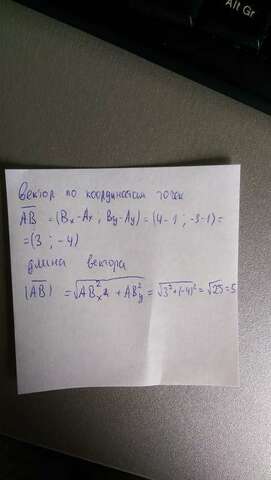 Alt Gr
Вектор по координатам точек
AB = (Bx-Ax ; By-Ay) = (4-1 ; -3-1) =
= (3 ; -4)
длина вектора
|AB| = √ABx² + ABy² = √3²+(-4)² = √25 = 5